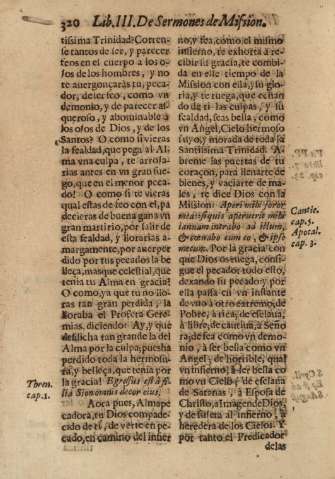 320 Lib. III. De Sermones de Mission.
tissima Trinidad? Corren-
se tantos de ser, y parecer
feos en el cuerpo a los o-
jos de los hombres, y no
te avergonçaràs tu, peca-
dor, de ser feo, como vn
demonio, y de parecer as-
queroso, y abominable à
los ojos de Dios, y de los
Santos? O como si vieras
la fealdad, que pega al Al-
ma vna culpa, te arroja-
rias antes en vn gran fue-
go, que en el menor peca-
do! O como si te vieras
qual estàs de feo con el, pa-
decieras de buena gana vn
gran martirio, por salir de
esta fealdad, y lloràras a-
margamente, por aver per-
dido por tus pecados la be-
lleça, mas que celestial, que
tenia tu Alma en gracia!
O como, ya que tu no llo-
ras tan gran perdida, la
lloraba el Profeta Gere-
mias, diciendo: Ay, y que
desdicha tan grande la del
Alma por la culpa; pues ha
perdido toda la hermosu-
ra, y belleça, que tenia por
la gracia! Egressus est à fi-
lia Sion omnis decor eius.
Thren.
cap. 1.
Aora pues, Alma pe-
cadora, tu Dios compade-
cido de ti, de verte en pe-
cado, en camino del infier-
no, y fea, como el mismo
infierno, te exhorta à re-
cibir su gracia, te combi-
da en este tiempo de la
Mission con ella, y su glo-
ria, y te ruega, que echan-
do de ti las culpas, y su
fealdad, seas bella, como
vn Angel, Cielo hermoso
suyo, y morada de toda la
Santissima Trinidad. A-
breme las puertas de tu
coraçon, para llenarte de
bienes, y vaciarte de ma-
les, te dice Dios con la
Mission: Aperi mihi soror
mea; si quis aperuerit mihi
ianuam intrabo ad illum,
& cœnabo cum eo, & ipse
mecum. Por la gracia con
Cantic.
cap. 5.
Apocal.
cap. 3.
que Dios os ruega, consi-
gue el pecador todo esto,
dexando su pecado, y por
ella passa en vn instante
de vno à otro extremo, de
Pobre, à rica; de esclava,
à libre; de cautiva, à Seño-
ra; de fea como vn demo-
nio, à ser bella como vn
Angel; de horrible, qual
vn infierno, à ser bella co-
mo vn Cielo; de esclava
de Satanàs, à Esposa de
Christo, à Imagen de Dios,
y de sujeta al infierno, à
heredera de los Cielos. Y
por tanto el Predicador
de las